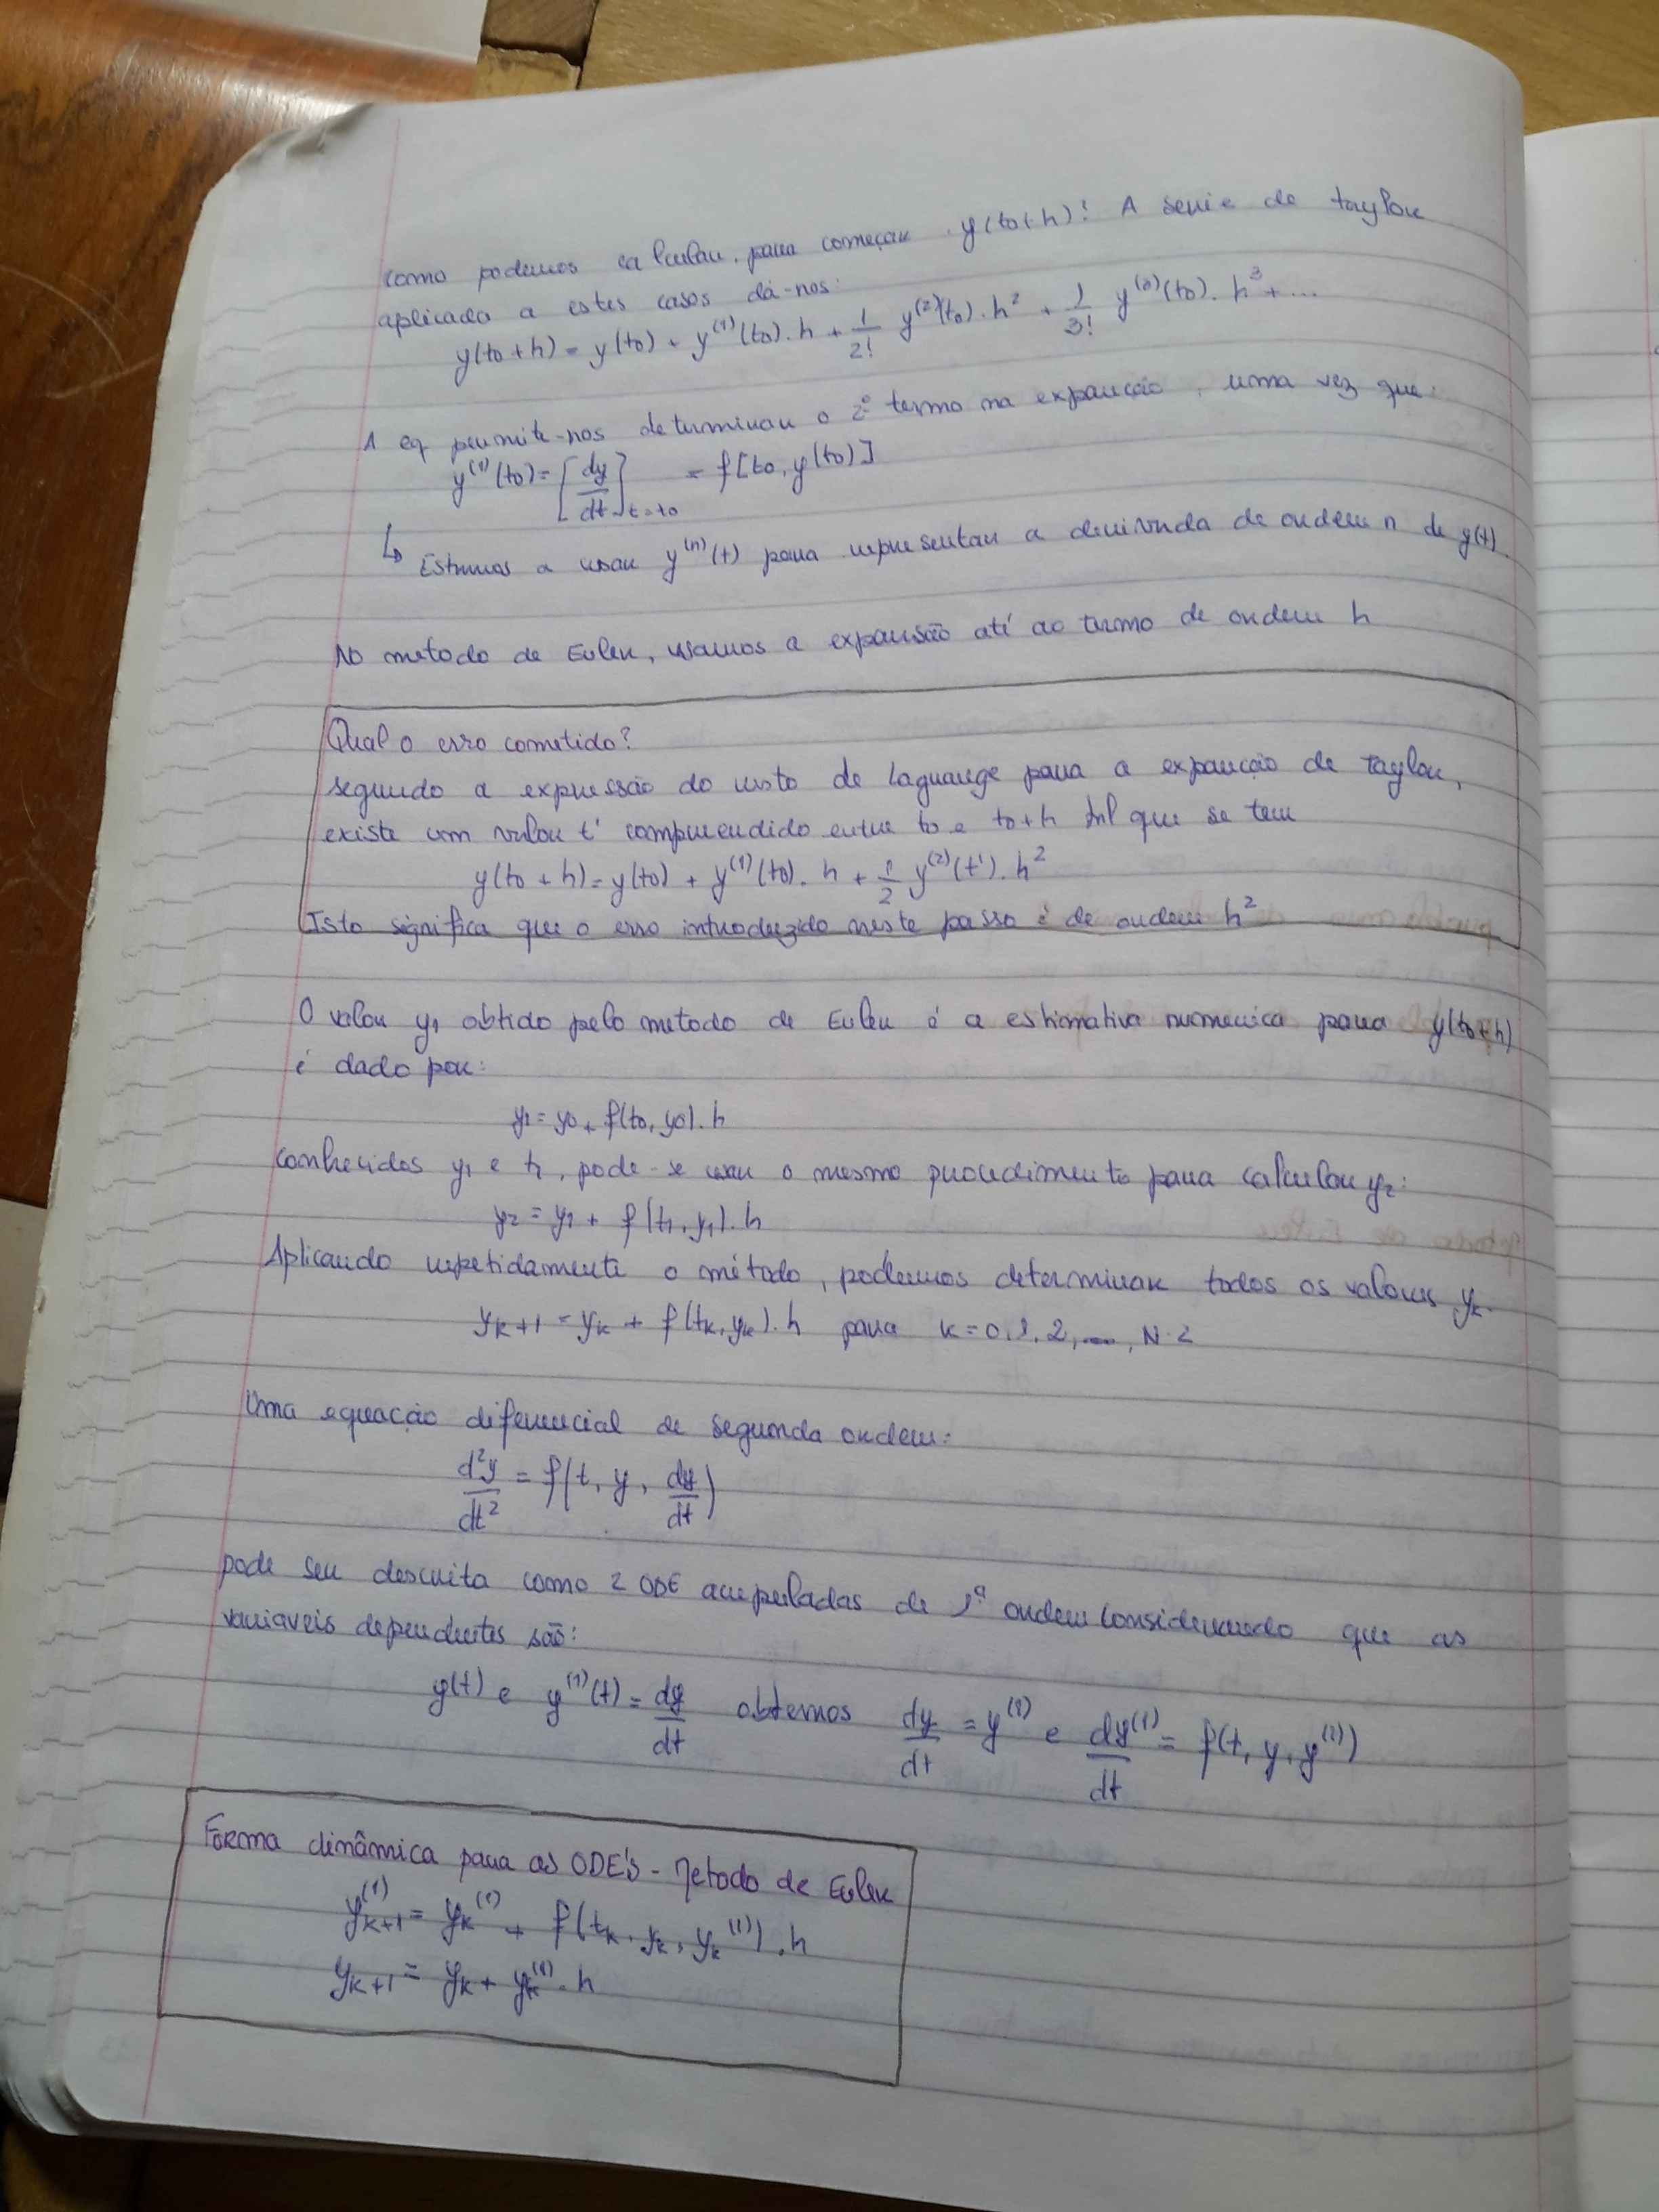 como podemos calcular, para começar y(t0+h)? A serie de taylor
aplicada a estes casos dá-nos:
y(t0+h) = y(t0) + y^(1)(t0).h + 1/2! y^(2)(t0).h^2 + 1/3! y^(3)(t0).h^3+...
A eq permite-nos determinar o 2º termo na expanção, uma vez que:
y^(1)(t0) = [dy/dt]t=t0 = f[t0, y(t0)]
↳ Estamos a usar y^(n)(t) para representar a derivada de ordem n de y(t).
No metodo de Euler, usamos a expansão até ao termo de ordem h
Qual o erro cometido?
segundo a expressão do resto de Lagrange para a expanção de Taylor,
existe um valor t' compreendido entre t0 e t0+h tal que se tem
y(t0 + h) = y(t0) + y^(1)(t0). h + 1/2 y^(2)(t').h^2
Isto significa que o erro introduzido neste passo é de ordem h^2
O valor y1 obtido pelo metodo de Euler é a estimativa numerica para y(t0+h)
é dado por:
y1 = y0 + f(t0, y0).h
conhecidos y1 e t1, pode-se usar o mesmo procedimento para calcular y2:
y2 = y1 + f(t1, y1).h
Aplicando repetidamente o método, podemos determinar todos os valores yk.
yk+1 = yk + f(tk, yk).h para k=0,1,2,..., N-2
Uma equação diferencial de segunda ordem:
d^2y/dt^2 = f(t, y, dy/dt)
pode ser descrita como 2 ODE acupuladas de 1ª ordem considerando que as
variaveis dependentes são:
y(t) e y^(1)(t) = dy/dt obtemos dy/dt = y^(1) e dy^(1)/dt = f(t, y, y^(1))
Forma dinâmica para as ODE's - Metodo de Euler
yk+1^(1) = yk^(1) + f(tk, yk, yk^(1)).h
yk+1 = yk + yk^(1).h